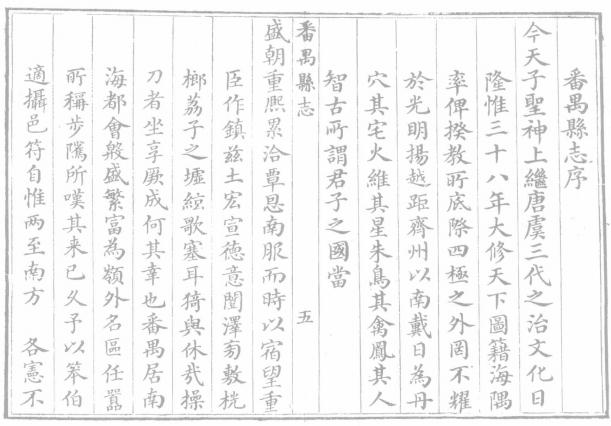 番禺縣志序
今天子聖神上繼唐虞三代之治文化日
隆惟三十八年大修天下圖籍海隅
率俾揆教所底際四極之外罔不耀
於光明揚越距齊州以南戴日為丹
穴其宅火維其星朱鳥其禽鳳其人
智古所謂君子之國當
番禺縣志 五
盛朝重熙累洽覃恩南服而時以宿望重
臣作鎮兹土宏宣德意闓澤旁敷桄
榔荔子之墟絃歌塞耳猗與休哉操
刀者坐享厥成何其幸也番禺居南
海都會殷盛繁富為嶺外名區任囂
所稱步騭所嘆其来已久予以笨伯
適攝邑符自惟两至南方 各憲不